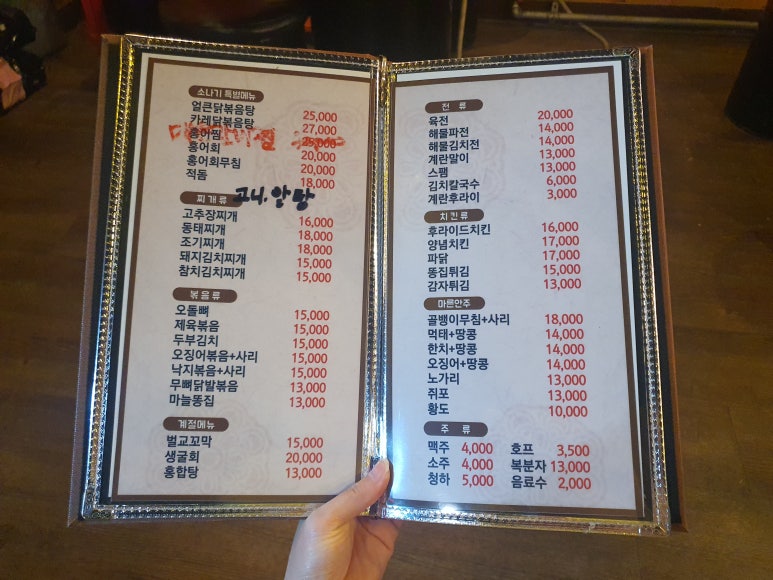 소나기 특별메뉴
얼큰닭볶음탕 25,000
카레닭볶음탕 27,000
홍어찜 25,000
홍어회 20,000
홍어회무침 20,000
적돔 18,000
찌개류 고니, 알탕
고추장찌개 16,000
동태찌개 18,000
조기찌개 18,000
돼지김치찌개 15,000
참치김치찌개 15,000
볶음류
오돌뼈 15,000
제육볶음 15,000
두부김치 15,000
오징어볶음+사리 15,000
낙지볶음+사리 15,000
무뼈닭발볶음 13,000
마늘똥집 13,000
계절메뉴
벌교꼬막 15,000
생굴회 20,000
홍합탕 13,000
전 류
육전 20,000
해물파전 14,000
해물김치전 14,000
계란말이 13,000
스팸 13,000
김치칼국수 6,000
계란후라이 3,000
치킨류
후라이드치킨 16,000
양념치킨 17,000
파닭 17,000
똥집튀김 15,000
감자튀김 13,000
마른안주
골뱅이무침+사리 18,000
먹태+땅콩 14,000
한치+땅콩 14,000
오징어+땅콩 14,000
노가리 13,000
쥐포 13,000
황도 10,000
주 류
맥주 4,000 호프 3,500
소주 4,000 복분자 13,000
청하 5,000 음료수 2,000